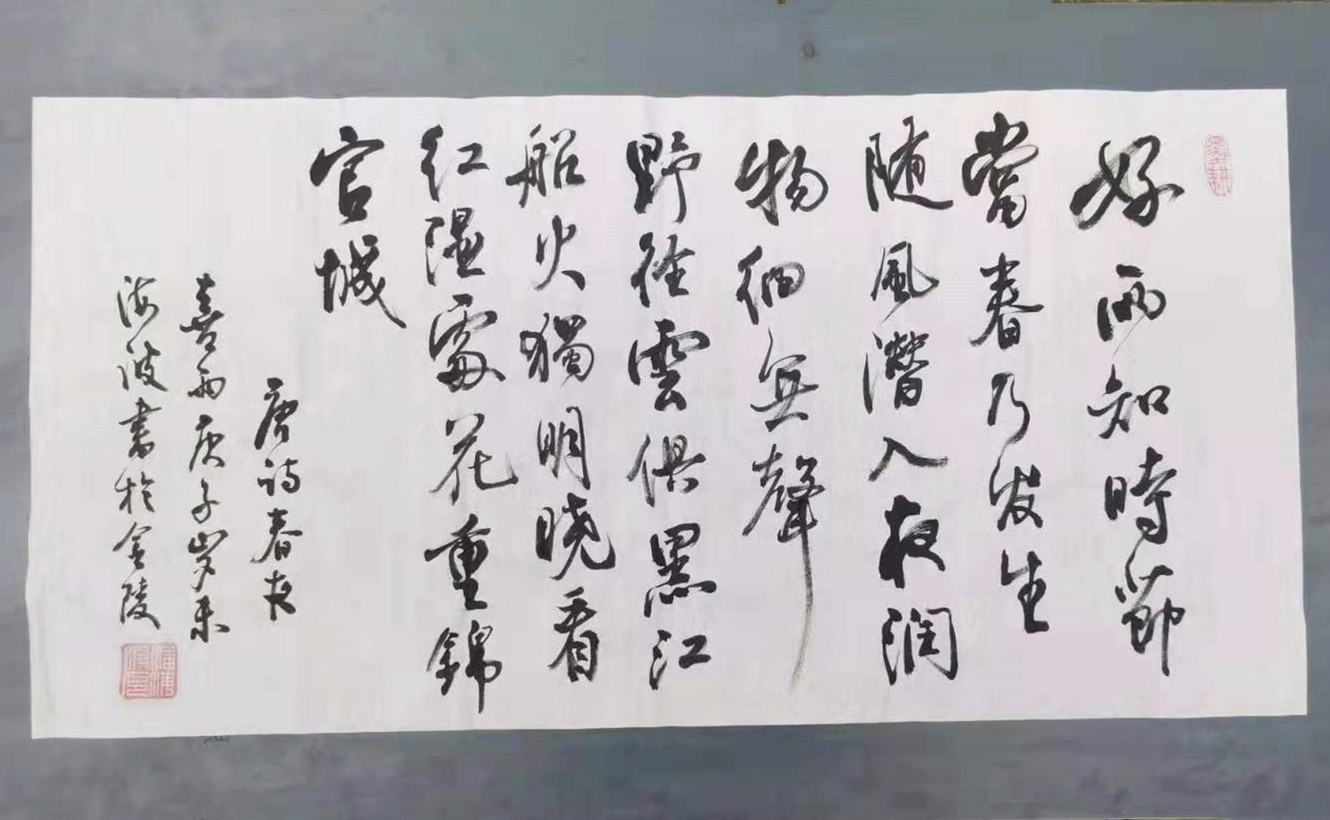 好雨知時節
當春乃发生
随風潛入夜潤
物细無聲
野徑雲俱黑江
船火獨明曉看
红濕處花重錦
官城
唐诗春夜
喜雨庚子岁末
海波書於金陵